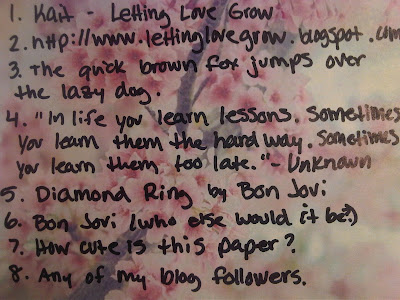 1. Kait - Letting Love Grow
2. http://www.lettinglovegrow.blogspot.com
3. The quick brown fox jumps over
the lazy dog.
4. "In life you learn lessons. Sometimes
you learn them the hard way. Sometimes
you learn them too late." - Unknown
5. Diamond Ring by Bon Jovi
6. Bon Jovi (who else would it be?)
7. How cute is this paper?
8. Any of my blog followers.